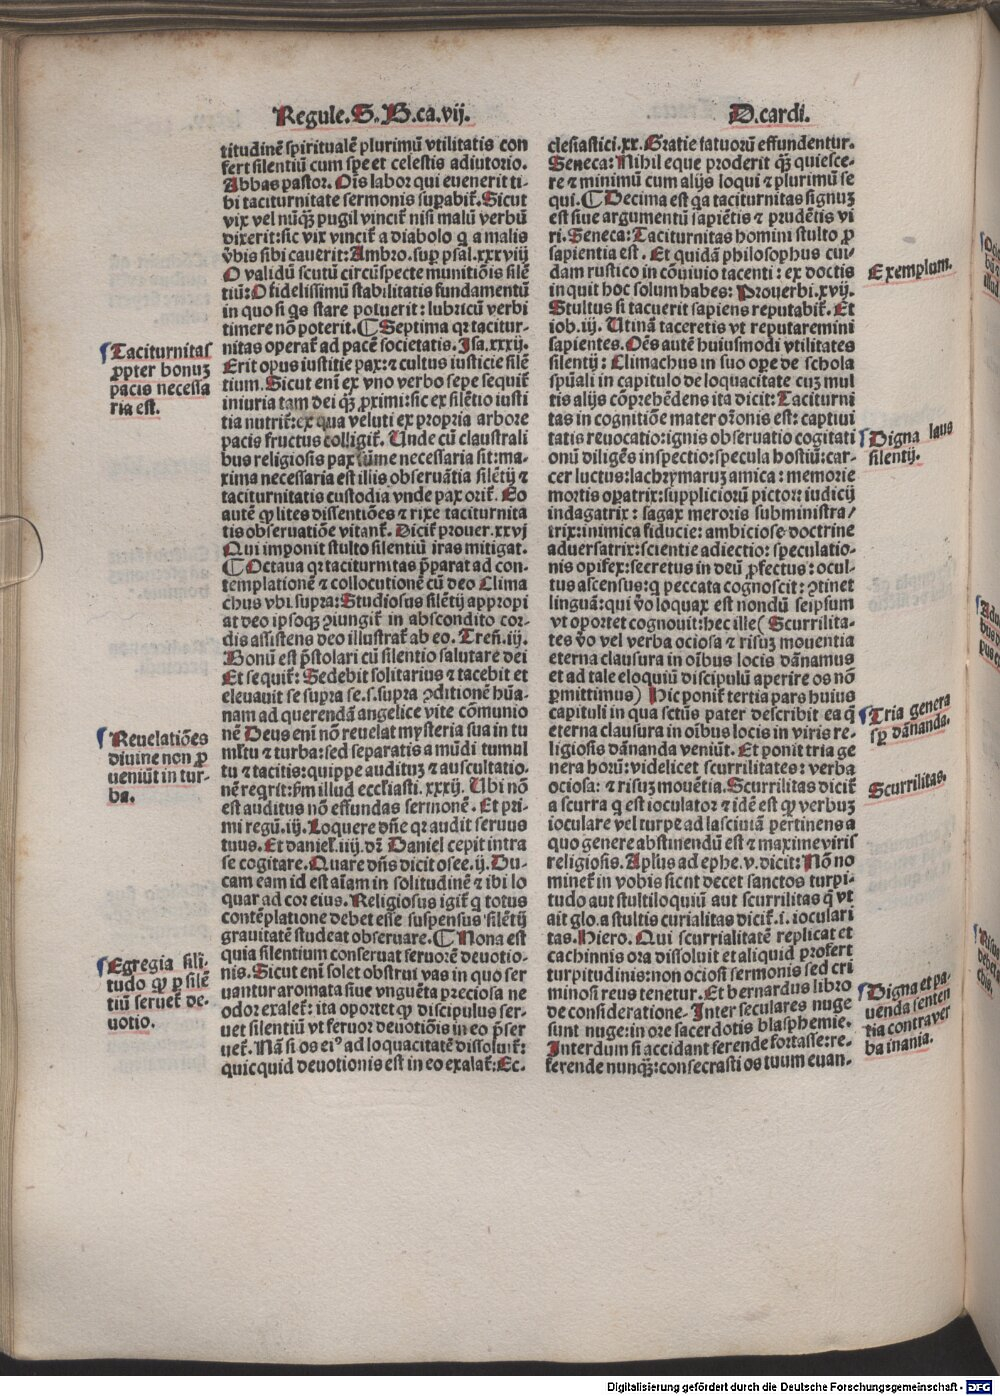 Regule.S.B.ca.vij.
D.cardi.
titudinē spiritualē plurimū vtilitatis con
fert silentiū cum spe et celestis adiutorio.
Abbas pastor. Oīs labor qui euenerit ti-
bi taciturnitate sermonis supabit̄. Sicut
vix vel nūq̄ pugil vincit̄ nisi malū verbū
dixerit: sic vix vincit̄ a diabolo q a malis
v̄bis sibi cauerit: Ambro. sup psal.xxxviij
O validū scutū circūspecte munitiōis silē
tiū: O fidelissimū stabilitatis fundamentū
in quo si qs stare potuerit: lubricū verbi
timere nō poterit. ¶ Septima qr tacitur-
nitas operat̄ ad pacē societatis. Isa.xxxij.
Erit opus iustitie pax: ⁊ cultus iusticie silē
tium. Sicut eni ex vno verbo sepe sequit̄
iniuria tam dei q̄ȝ ꝓximi: sic ex silētio iusti
tia nutrit̄: ex qua veluti ex propria arbore
pacis fructus colligit̄. Unde cū claustrali
bus religiosis pax sūme necessaria sit: ma-
xima necessaria est illis obseruātia silētij ⁊
taciturnitatis custodia vnde pax orit̄. Eo
autē ꝙ lites dissentiōes ⁊ rixe taciturnita
tis obseruatiōe vitant̄. Dicit̄ prouer.xxvj
Qui imponit stulto silentiū iras mitigat.
¶ Octaua qr taciturnitas p̄parat ad con-
templationē ⁊ collocutionē cū deo Clima
chus vbi supra: Studiosus silētij appropi
at deo ipsoqȝ ꝯiungit̄ in abscondito cor-
dis assistens deo illustrat̄ ab eo. Treñ.iij.
Bonū est p̄stolari cū silentio salutare dei
Et sequit̄: Sedebit solitarius ⁊ tacebit et
eleuauit se supra se.s.supra ꝯditionē hūa-
nam ad querendā angelice vite cōmunio
nē Deus eni nō reuelat mysteria sua in tu
mltu ⁊ turba: sed separatis a mūdi tumul
tu ⁊ tacitis: quippe audituȝ ⁊ auscultatio-
nē reqrit: fm illud eccliasti.xxxij. Ubi nō
est auditus nō effundas sermonē. Et pri-
mi regū.iij. Loquere dn̄e qr audit seruus
tuus. Et daniel.iiij. dr̄ Daniel cepit intra
se cogitare. Quare dn̄s dicit osee.ij. Du-
cam eam id est aīam in solitudinē ⁊ ibi lo
quar ad cor eius. Religiosus igit̄ q totus
contēplatione debet esse suspensus silētij
grauitatē studeat obseruare. ¶ Nona est
quia silentium conseruat feruorē deuotio-
nis. Sicut eni solet obstrui vas in quo ser
uantur aromata siue vnguēta preciosa ne
odor exalet̄: ita oportet ꝙ discipulus ser-
uet silentiū vt feruor deuotiōis in eo p̄ser
uet̄. Nā si os eiꝰ ad loquacitatē dissoluit̄:
quicquid deuotionis est in eo exalat̄: Ec-
clesiastici.xx. Gratie fatuorū effundentur.
Seneca: Nihil eque proderit q̄ȝ quiesce-
re ⁊ minimū cum alijs loqui ⁊ plurimū se
qui. ¶ Decima est qa taciturnitas signuȝ
est siue argumentū sapiētis ⁊ prudētis vi
ri. Seneca: Taciturnitas homini stulto ꝓ
sapientia est. Et quidā philosophus cui-
dam rustico in cōuiuio tacenti: ex doctis
inquit hoc solum habes: Prouerbi.xvij.
Stultus si tacuerit sapiens reputabit̄. Et
iob.iij. Utinā taceretis vt reputaremini
sapientes. Oēs autē huiusmodi vtilitates
silentij: Climachus in suo oꝑe de schola
spūali in capitulo de loquacitate cuȝ mul
tis alijs cōprehēdens ita dicit: Taciturni
tas in cognitiōe mater oronis est: captiui
tatis reuocatio: ignis obseruatio cogitati
onū diligēs inspectio: specula hostiū: car-
cer luctus: lachrymaruȝ amica: memorie
mortis oꝑatrix: suppliciorū pictor: iudicij
indagatrix: sagax meroris subministra/
trix: inimica fiducie: ambiciose doctrine
aduersatrix: scientie adiectio: speculatio-
nis opifex: secretus in deū ꝓfectus: ocul-
tus ascensus: q peccata cognoscit: ꝯtinet
linguā: qui v̄o loquax est nondū seipsum
vt oportet cognouit: hec ille ( Scurrilita-
tes v̄o vel verba ociosa ⁊ risuȝ mouentia
eterna clausura in oībus locis dānamus
et ad tale eloquiū discipulū aperire os nō
ꝑmittimus) Hic ponit̄ tertia pars huius
capituli in qua sctūs pater describit ea q̄
eterna clausura in oībus locis in viris re-
ligiosis dānanda veniūt. Et ponit tria ge
nera horū: videlicet scurrilitates: verba
ociosa: ⁊ risuȝ mouētia. Scurrilitas dicit̄
a scurra q est ioculator ⁊ idē est ꝙ verbuȝ
ioculare vel turpe ad lasciuiā pertinens a
quo genere abstinendū est ⁊ maxime viris
religiosis. Aplus ad ephe.v.dicit: Nō no
minet̄ in vobis sicut decet sanctos turpi-
tudo aut stultiloquiū aut scurrilitas q̄ vt
ait glo.a stultis curialitas dicit̄.i. ioculari
tas. Hiero. Qui scurrialitatē replicat et
cachinnis ora dissoluit et aliquid profert
turpitudinis: non ociosi sermonis sed cri
minosi reus tenetur. Et bernardus libro
de consideratione. Inter seculares nuge
sunt nuge: in ore sacerdotis blasphemie.
Interdum si accidant ferende fortasse: re-
ferende nunq̄ȝ: consecrasti os tuum euan-
Taciturnitas
ꝓpter bonuȝ
pacis necessa
ria est.
Reuelatiōes
diuine non ꝓ
ueniūt in tur-
ba.
Egregia sili
tudo ꝙ ꝑ silē
tiū seruet̄ de-
uotio.
Exemplum.
Digna laus
silentij.
Tria genera
sꝑ dānanda.
Scurrilitas.
Digna et pa-
uenda senten
tia contra ver
ba inania.
Digitalisierung gefördert durch die Deutsche Forschungsgemeinschaft - DFG